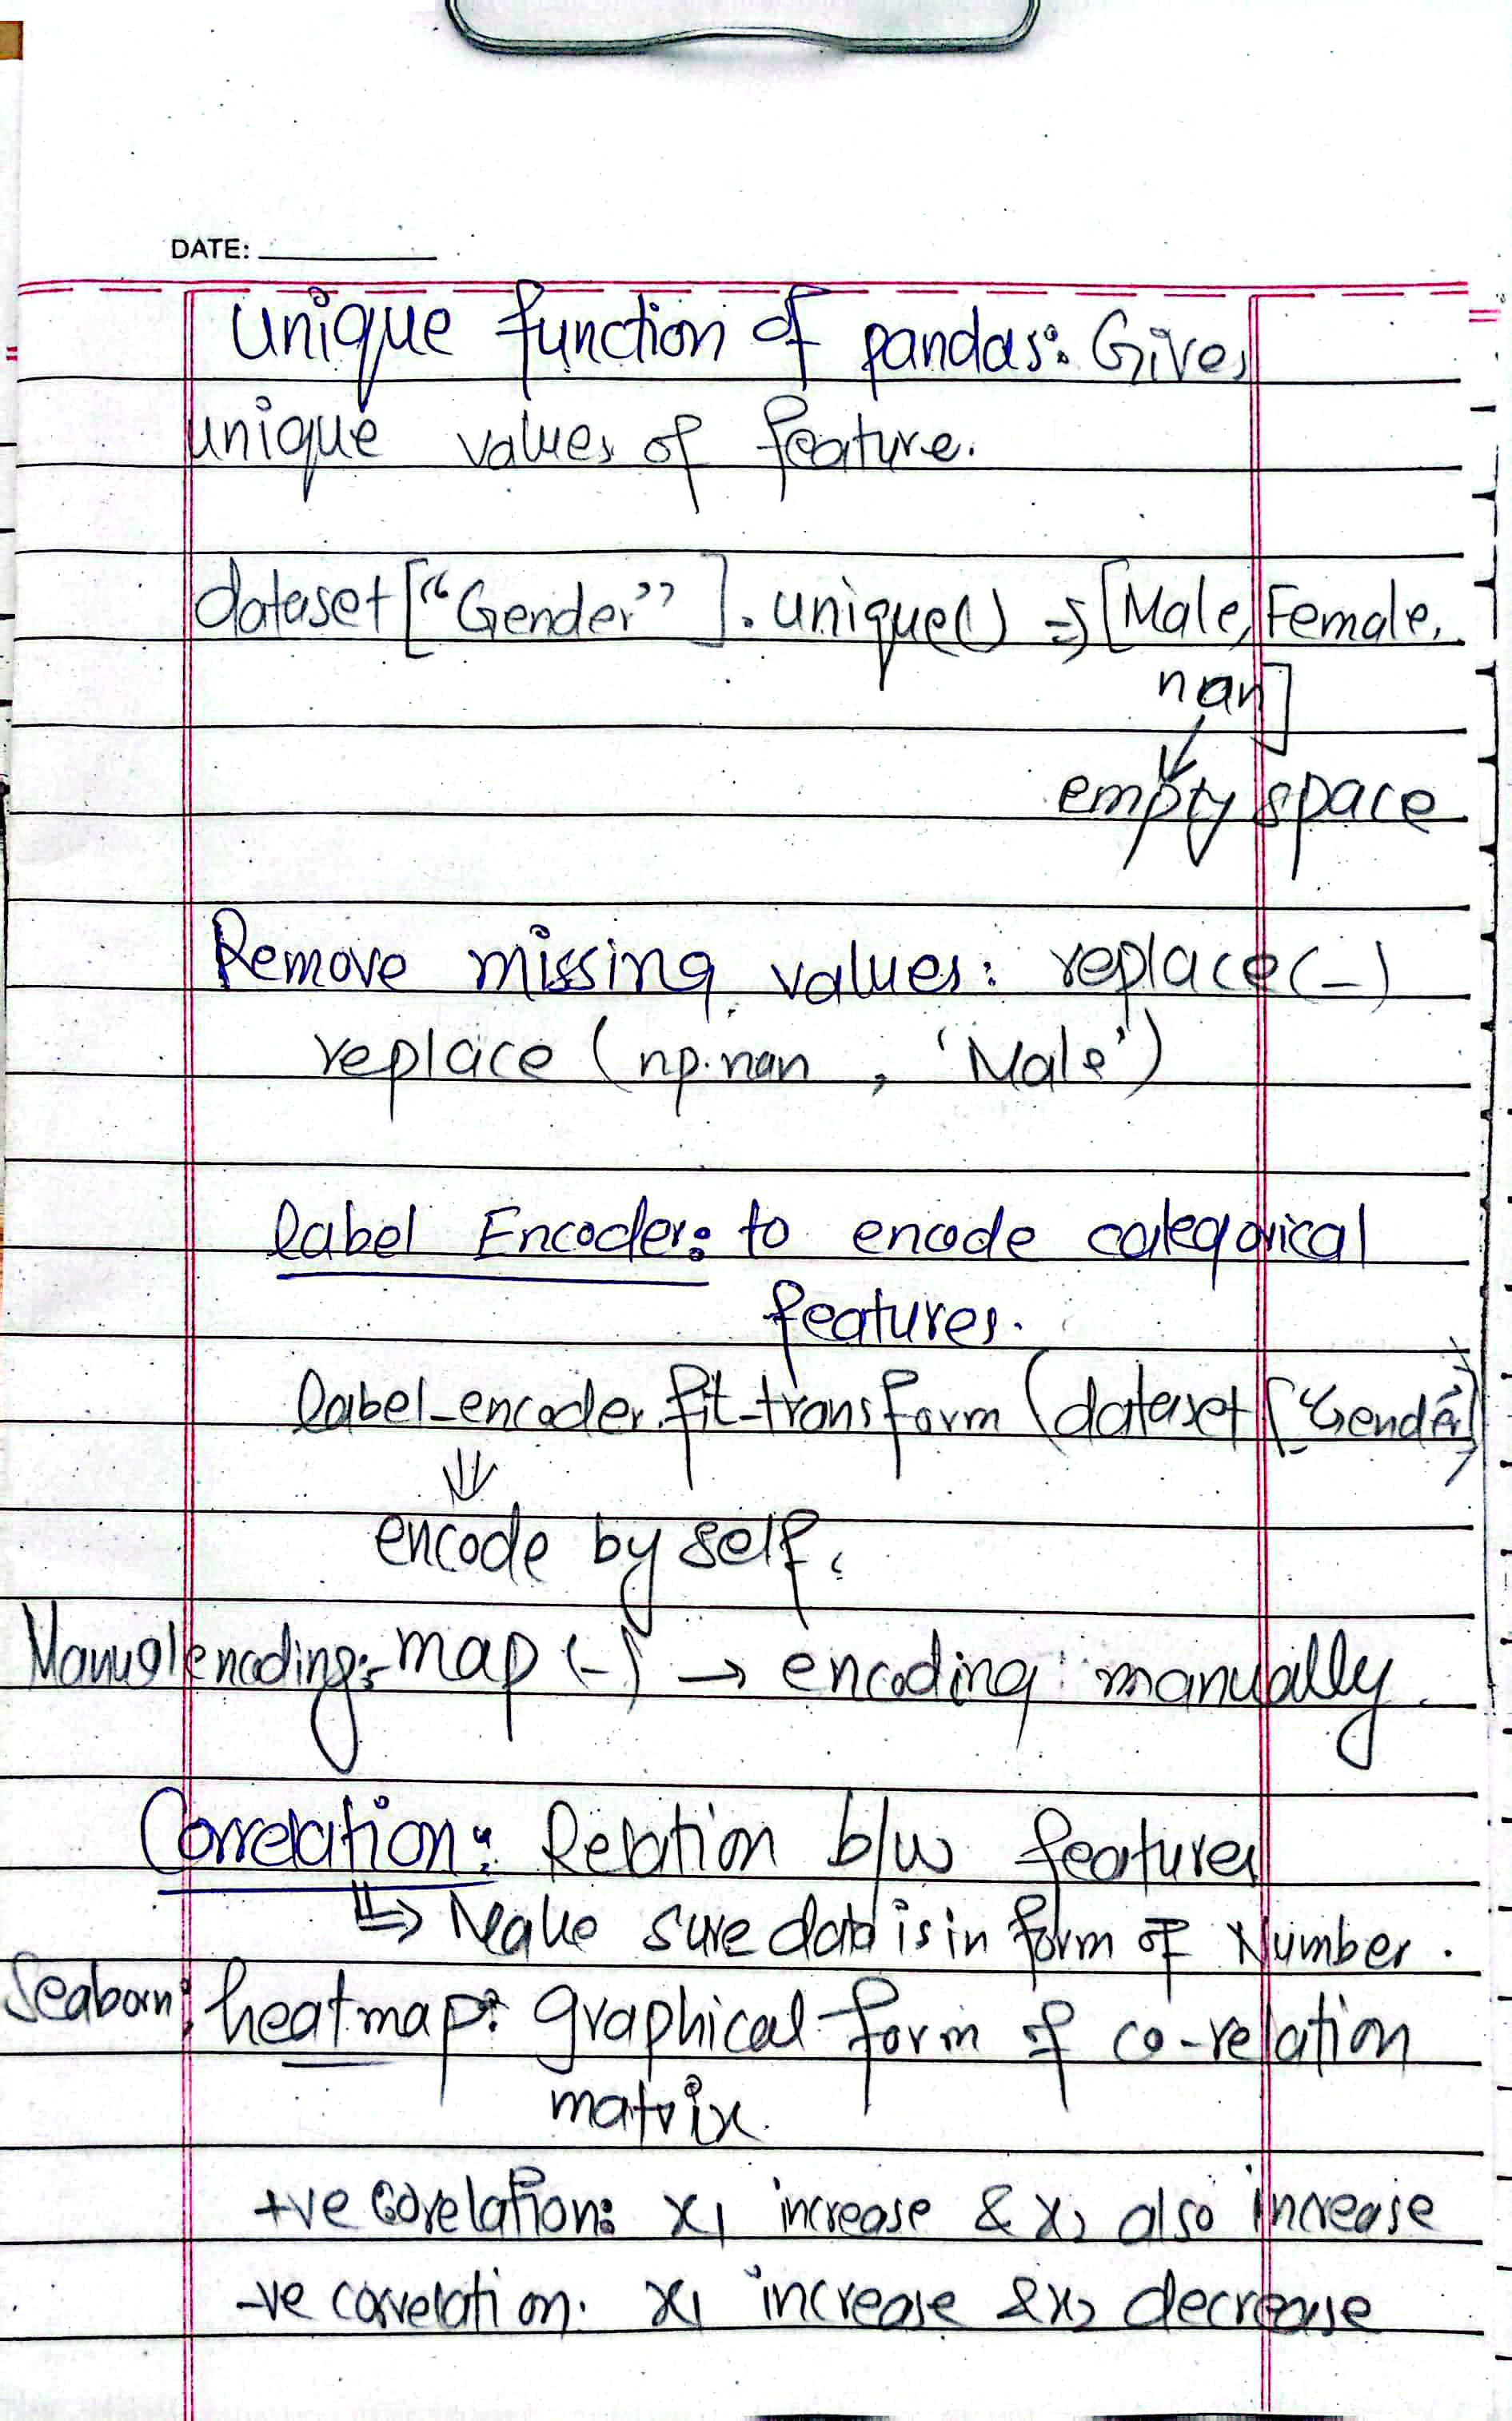 DATE:
Unique function of pandas: Gives
unique values of feature.
dataset ["Gender"]. unique() => [Male, Female,
nan]
empty space
Remove missing values: replace(-)
replace (np.nan , 'Male')
label Encoder: to encode categorical
features.
label-encoder.fit-transform (dataset ["Gender"])
encode by self.
Manual encoding:- map (-) → encoding manually.
Correlation: Relation b/w features
=> Make sure data is in form of Number.
Seaborn: heatmap: graphical form of co-relation
matrix.
+ve corelation: x1 increase & x2 also increase
-ve correlation. x1 increase & x2 decrease